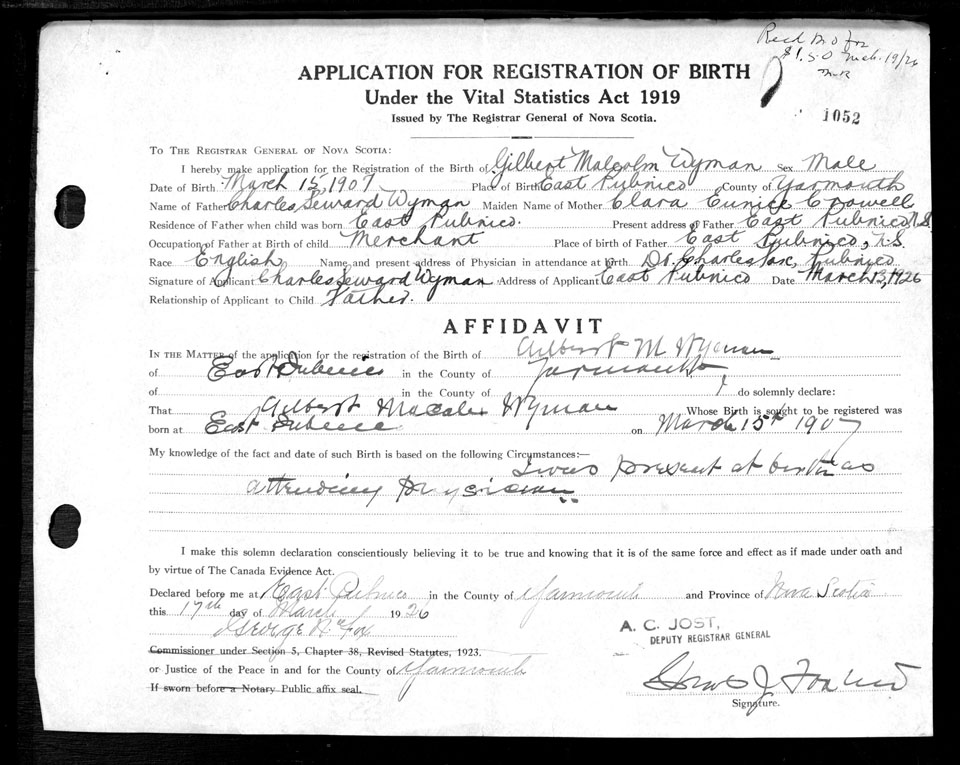 Recd M O for
$1.50 Mch. 19/26
APPLICATION FOR REGISTRATION OF BIRTH
Under the Vital Statistics Act 1919
Issued by The Registrar General of Nova Scotia.
1052
TO THE REGISTRAR GENERAL OF NOVA SCOTIA:
I hereby make application for the Registration of the Birth of Gilbert Malcolm Wyman Sex Male
Date of Birth March 15, 1907 Place of Birth East Pubnico County of Yarmouth
Name of Father Charles Seward Wyman Maiden Name of Mother Clara Eunice Crowell
Residence of Father when child was born East Pubnico. Present address of Father East Pubnico, N.S.
Occupation of Father at Birth of child Merchant Place of birth of Father East Pubnico, N.S.
Race English Name and present address of Physician in attendance at birth Dr. Charles Fox, Pubnico
Signature of Applicant Charles Seward Wyman Address of Applicant East Pubnico Date March 13, 1926
Relationship of Applicant to Child Father.
AFFIDAVIT
IN THE MATTER of the application for the registration of the Birth of Gilbert M Wyman
of East Pubnico in the County of Yarmouth
of in the County of I do solemnly declare:
That Gilbert Wyman Whose Birth is sought to be registered was
born at East Pubnico on March 15th 1907
My knowledge of the fact and date of such Birth is based on the following Circumstances:—
I was present at birth as
attending physician
I make this solemn declaration conscientiously believing it to be true and knowing that it is of the same force and effect as if made under oath and
by virtue of The Canada Evidence Act.
Declared before me at East Pubnico in the County of Yarmouth and Province of Nova Scotia
this 17th day of March 1926
George
A. C. JOST,
DEPUTY REGISTRAR GENERAL
Commissioner under Section 5, Chapter 38, Revised Statutes, 1923.
or Justice of the Peace in and for the County of Yarmouth
If sworn before a Notary Public affix seal.
Signature.